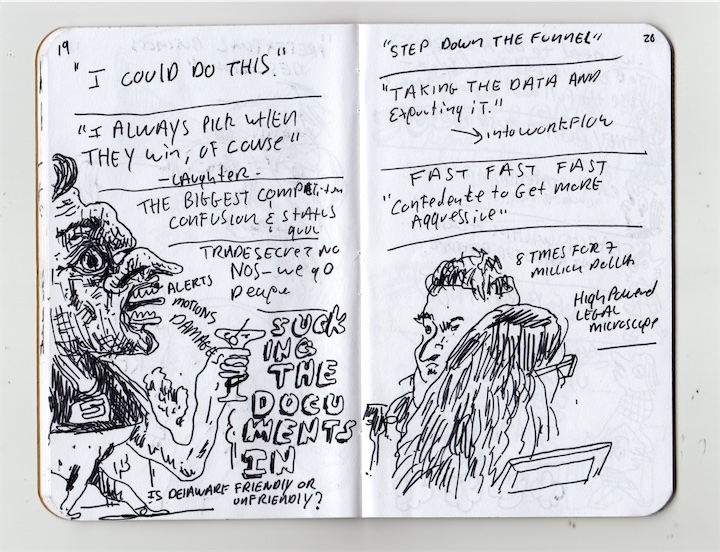 19
"I COULD DO THIS."
"I ALWAYS PICK WHEN
THEY WIN, OF COUSE"
- LAUGHTER -
THE BIGGEST COMPETITION
CONFUSION & STATUS
QUOU
TRADE SECRET NO
NOS - WE GO
DEUPE
ALERTS
MOTIONS
DAMAGES
SUCK
ING
THE
DOCU
MENTS
IN
IS DELAWARE FRIENDLY OR
UNFRIENDLY?
20
"STEP DOWN THE FUNNEL"
"TAKING THE DATA AND
EXPORTING IT."
→ INTO WORKFLOW
FAST FAST FAST
"CONFEDENTE TO GET MORE
AGGRESSIVE"
8 TMES FOR 7
MILLION DOLLAR
HIGH POWERED
LEGAL
MICROSCOPE